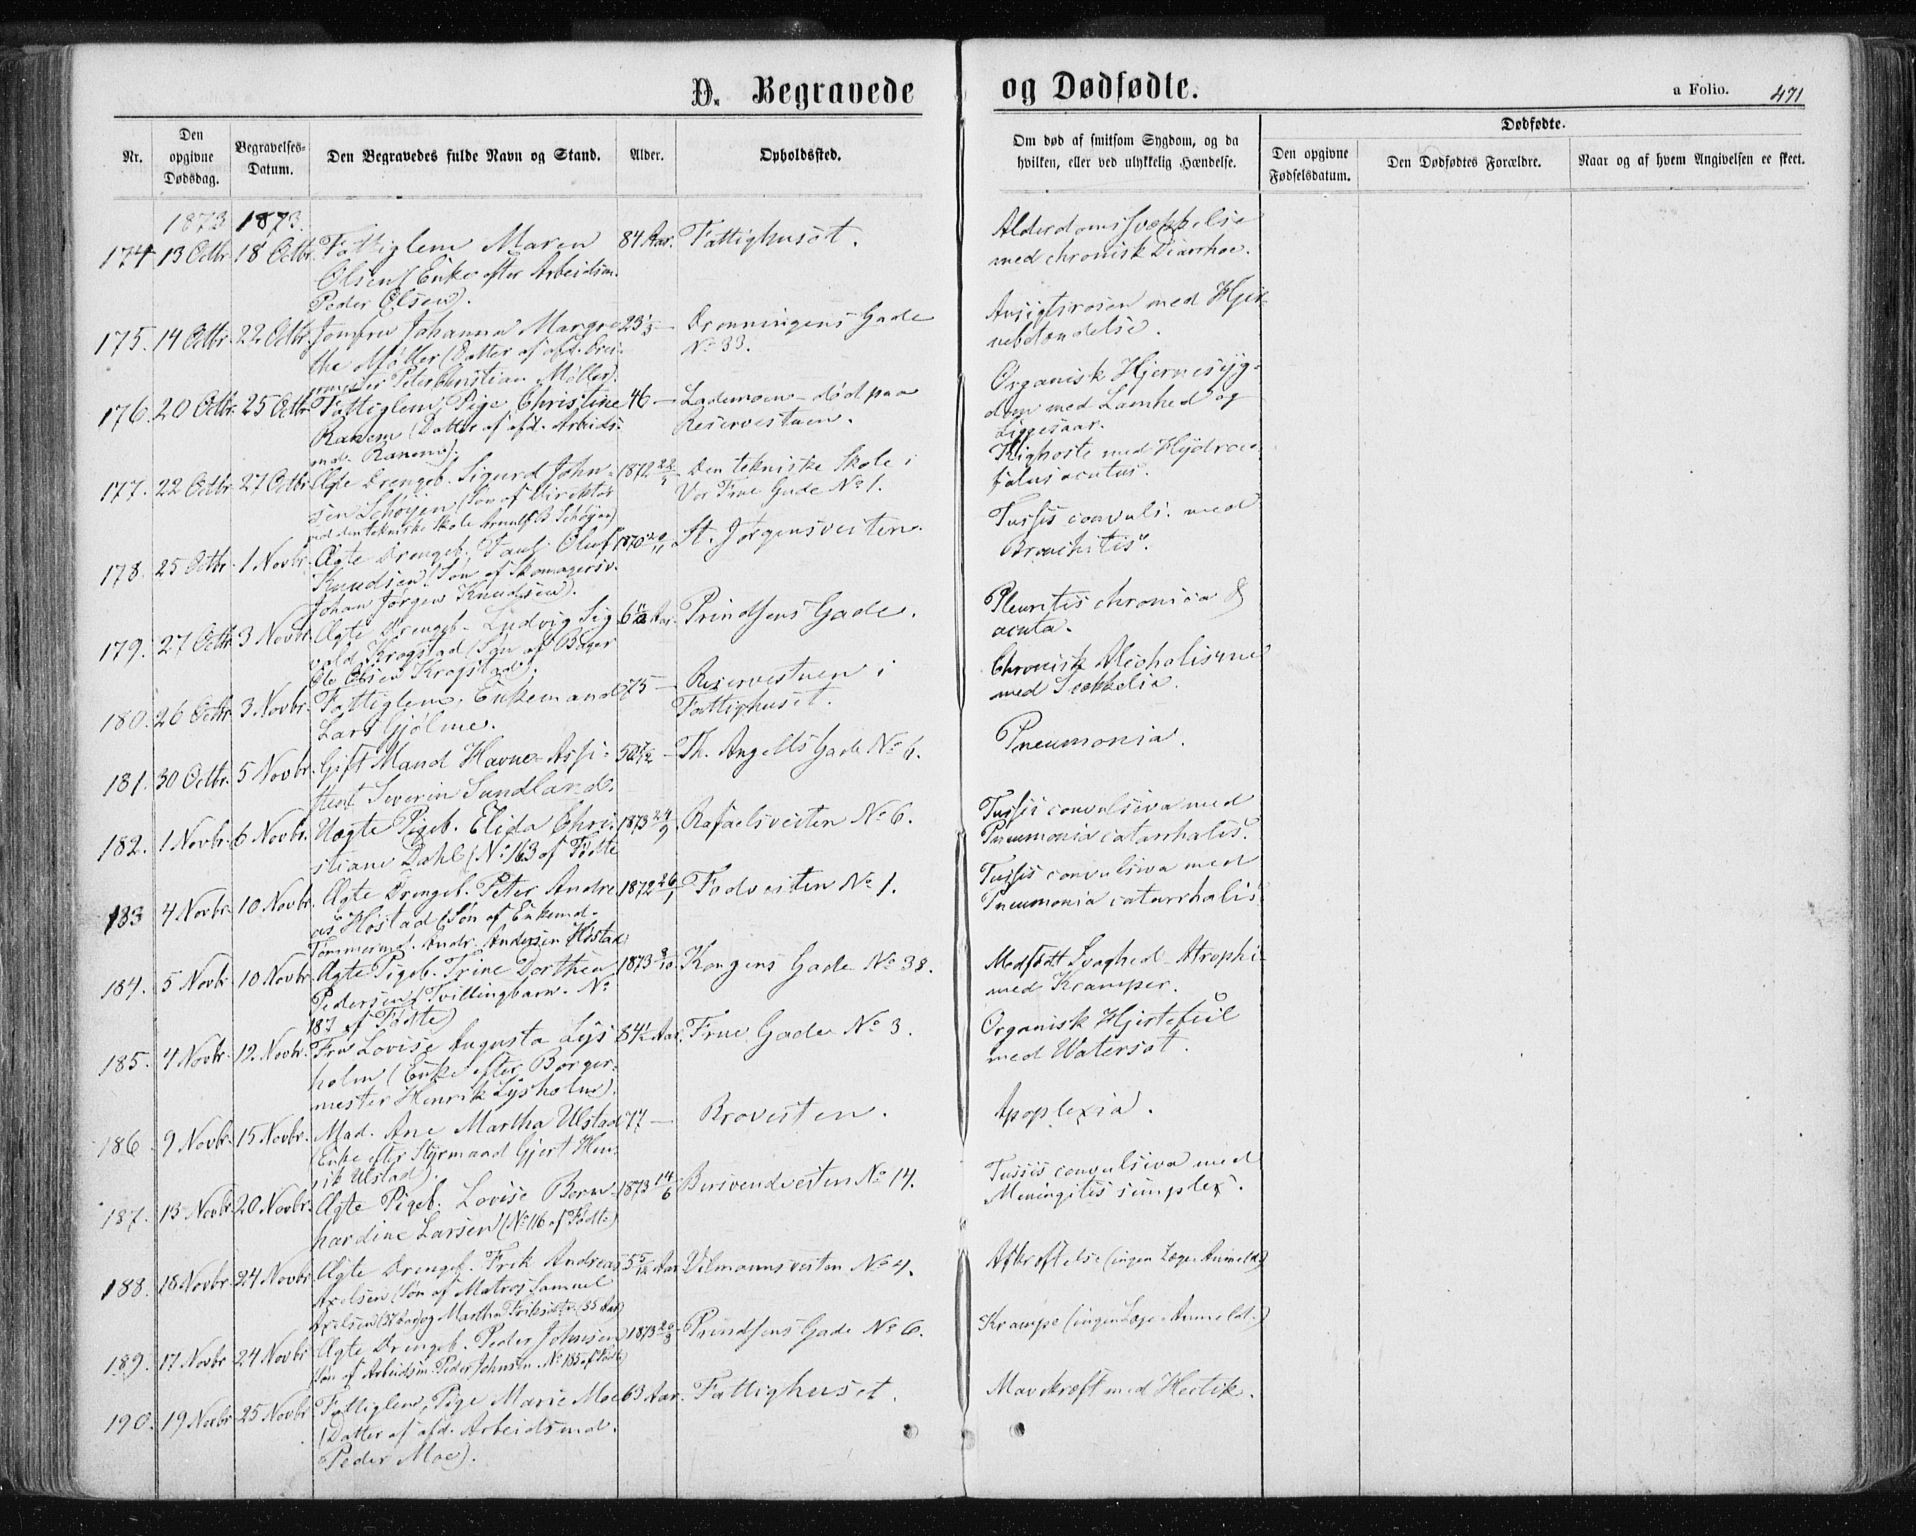 D. Begravede og Dødfødte.
a Folio. 471
Nr.
Den opgivne Dødsdag.
Begravelses-Datum.
Den Begravedes fulde Navn og Stand.
Alder.
Opholdssted.
Om død af smitsom Sygdom, og da hvilken, eller ved ulykkelig Hændelse.
Dødfødte.
Den opgivne Fødselsdatum.
Den Dødfødtes Forældre.
Naar og af hvem Angivelsen er skeet.
1873 1873.
174 13 Octbr 18 Octbr. Fattiglem Maren 84 Aar. Fattighuset. Alderdomssvækkelse
Olsen (Enke efter Arbeidsm. med chronisk Diarrhoe.
Peder Olsen).
175. 14 Octbr. 22 Octbr. Jomfru Johanna Margre 23 1/3 — Dronningens Gade Ansigtsrosen med Hjer-
the Møller (Datter af afd. N° 33. nebetændelse.
Peter Christian Møller).
176. 20 Octbr. 25 Octbr. Fattiglem, Pige Christine 46 — Lademoen – død paa Organisk Hjernesyg-
Ranem (Datter af afd. Arbeids- Reservestuen. dom med Lamhed og
md. Ranem). Liggesaar.
177. 22 Octbr. 27 Octbr. Ægte Drengeb. Sigurd John- 1872 22/1 Den tekniske Skole i Kighoste med Hydroce-
sen Schøyen (Søn af Direktør Vor Frue Gade N° 1. falus acutus.
ved den tekniske Skole Arnulf B Schøyen)
178. 25 Octbr. 1 Novbr. Ægte Drengeb. Pauli Oluf 1870 20/11 St. Jørgensveiten. Tussis convuls. med
Knudsen (Søn af Skomagersv. Bronchitis.
Johan Jørgen Knudsen).
179. 27 Octbr. 3 Novbr. Ægte Drengeb. Ludvig Sig- 6 11/12 Aar. Prindsens Gade. Pleuritis chronica &
vald Krogstad (Søn af Bager acuta.
Ole Olsen Krogstad).
180. 26 Octbr. 3 Novbr. Fattiglem, Enkemand 75 — Reservestuen i Chronisk Alcoholisme
Lars Gjølme. Fattighuset. med Svækkelse.
181. 30 Octbr. 5 Novbr. Gift Mand Havne-Assi- 50 7/12 — Th. Angells Gade N° 6. Pneumonia.
stent Severin Sundland.
182. 1 Novbr. 6 Novbr. Uægte Pigeb. Elida Chri- 1873 24/9 Rafaelsveiten N° 6. Tussis convulsiva med
stiane Dahl (N° 163 af Fødte Pneumonia catarrhalis.
183 4 Novbr. 10 Novbr. Ægte Drengeb. Peter Andre- 1872 26/1 Fodveiten N° 1. Tussis convulsiva med
as Høstad (Søn af Enkemd. Pneumonia catarrhalis.
Tømmermd. Andr. Andersen Høstad)
184. 5 Novbr. 10 Novbr. Ægte Pigeb. Trine Dorthea 1873 9/10 Kongens Gade N° 38. Medfødt Svaghed – Atrophi
Pedersen (Tvillingbarn. N° med Kramper.
187 af Fødte)
185. 4 Novbr. 12. Novbr. Fru Lovise Augusta Lys 84 1/2 Aar. Frue Gade N° 3. Organisk Hjertefeil
holm (Enke efter Borger- med Watersot.
mester Henrik Lysholm).
186 9 Novbr. 15 Novbr. Mad. Ane Martha Ulstad 77 — Broveiten. Apoplexia.
(Enke efter Styrmand Gjert Hen-
rik Ulstad).
187. 13 Novbr 20 Novbr. Ægte Pigeb. Lovise Born- 1873 14/6 Bersvendveiten N° 14. Tussis convulsiva med
hardine Larsen (N° 116 af Fødte) Meningitis simplex.
188. 18 Novbr 24 Novbr. Ægte Drengeb. Erik Andreas 5 5/12 Aar Vilmannsveiten N° 4. Afkræftelse (ingen Læge-Anmeld.)
Axelsen (Søn af Matros Samuel
Axelsen (37 Aar) og Martha Eriksdtr. (35 Aar)
189. 17 Novbr 24 Novbr Ægte Drengeb. Peder Johnsen 1873 20/8 Prindsens Gade N° 6. Krampe (ingen Læge-Anmeld.)
Søn af Arbeidsm. Peder Johnsen. N° 185 af Fødte)
190. 19 Novbr 25 Novbr Fattiglem, Pige Marie Moe 63 Aar. Fattighuset. Mavekræft med Hectik.
(Datter af afd. Arbeidsmd.
Peder Moe).